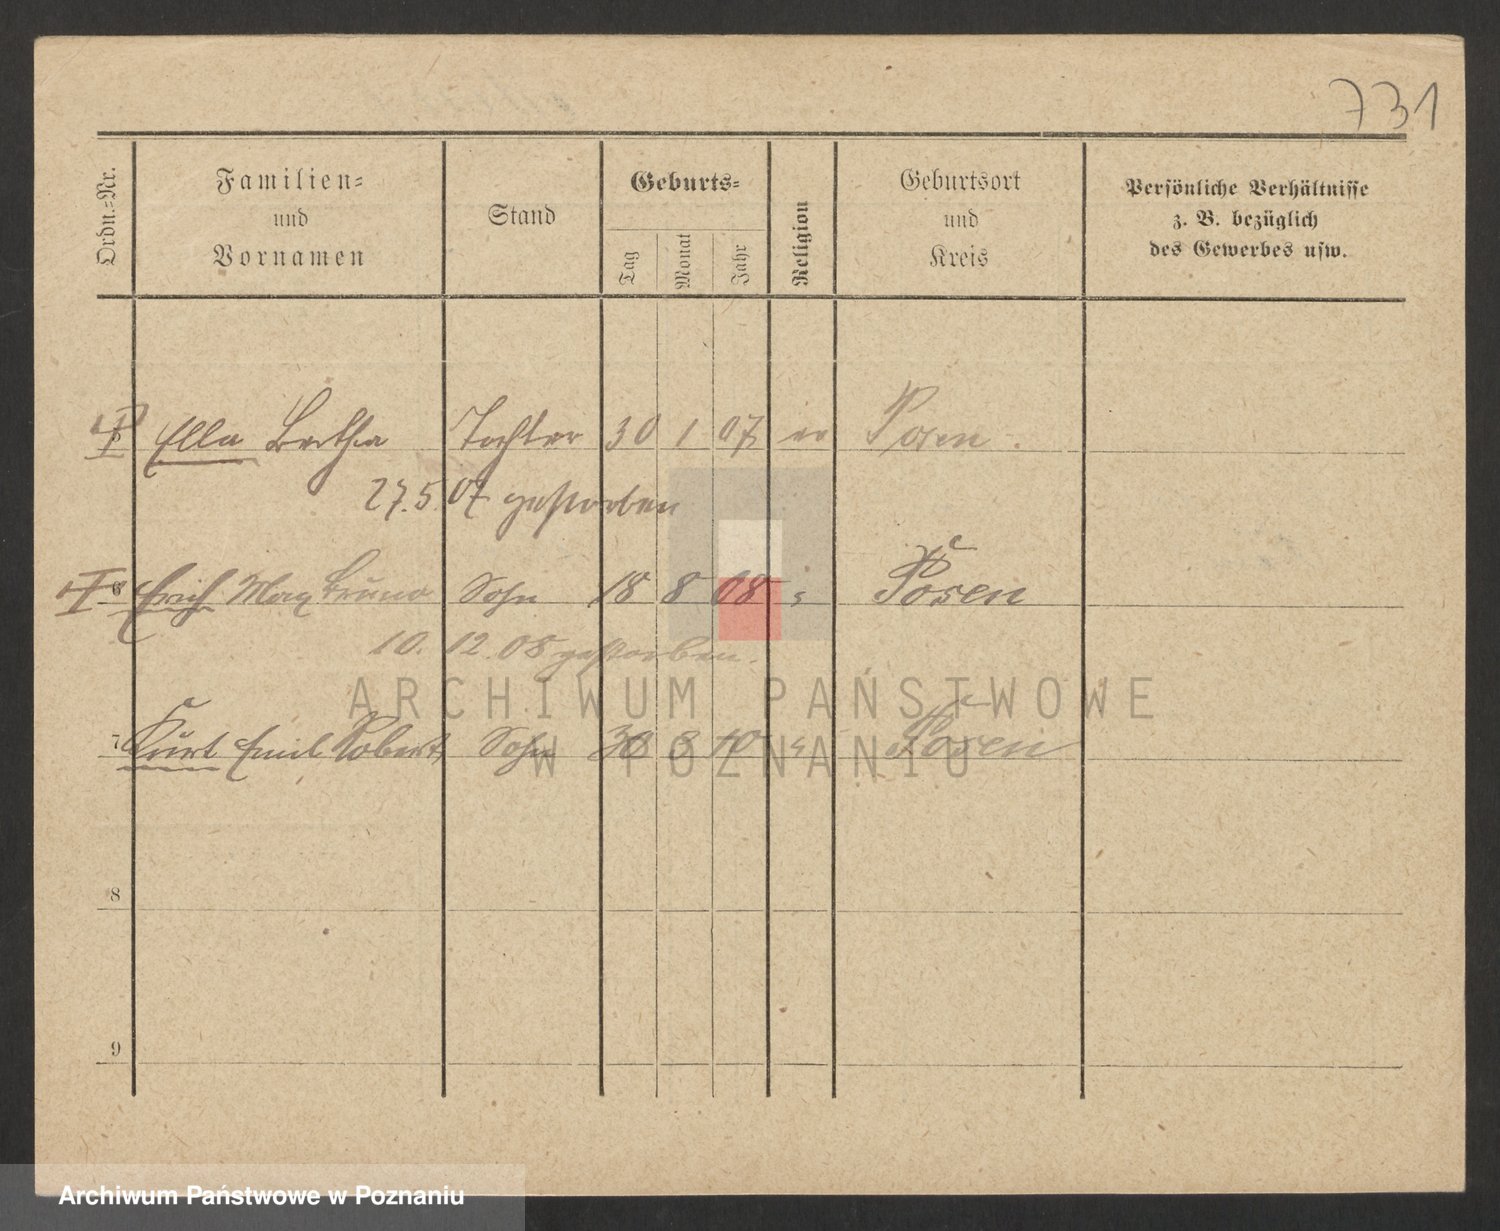 731
Ordn.-Nr.
Familien-
und
Vornamen
Stand
Geburts-
Tag
Monat
Jahr
Religion
Geburtsort
und
Kreis
Persönliche Verhältnisse
z. B. bezüglich
des Gewerbes usw.
Ella Bertha Tochter 30 1 07 ev Posen.
27.5.07 gestorben
6 Erich Max Bruno Sohn 18 8 08 " Posen
10. 12. 08 gestorben.
ARCHIWUM PAŃSTWOWE
7 Kurt Emil Robert Sohn 30 8 10 " Posen
W POZNANIU
8
9
Archiwum Państwowe w Poznaniu